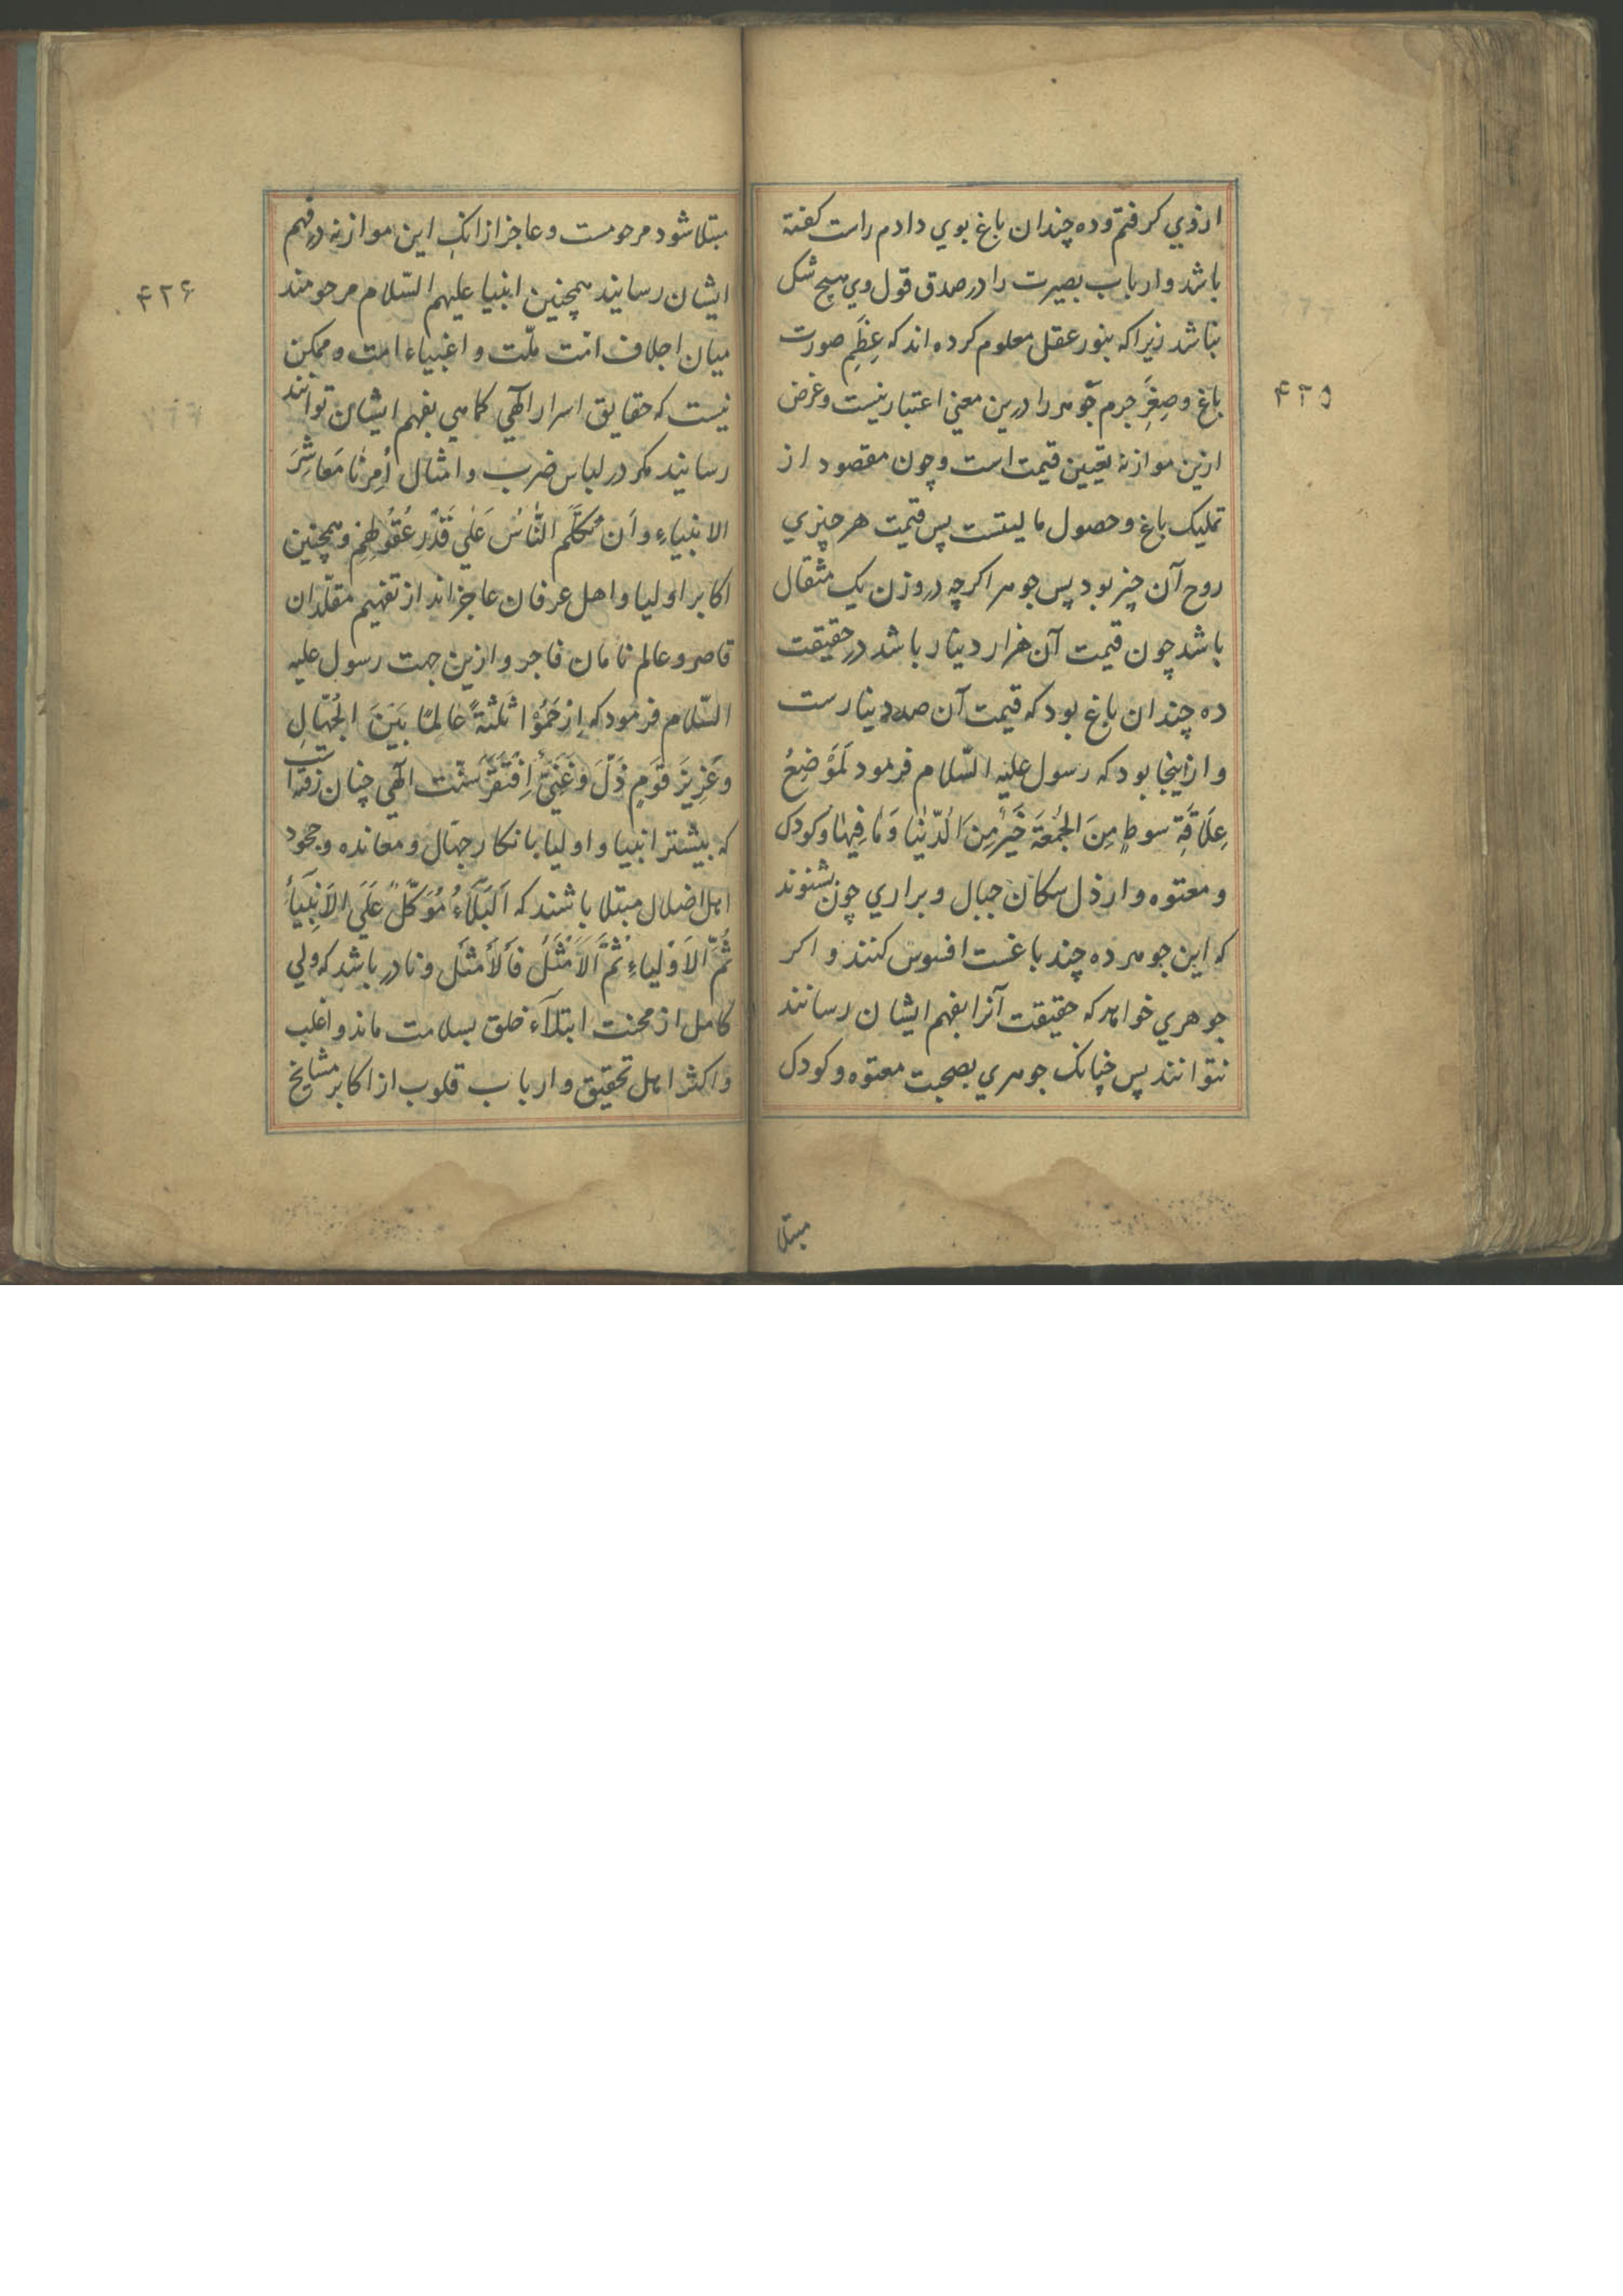 ازوی کرفتم و ده چندان باغ بوی دادم راست کفته
باشد و ارباب بصیرت را در صدق قول وی هیچ شک
نباشد زیرا که بنور عقل معلوم کرده اند که عِظَمِ صورت
باغ و صِغَرِ جرم جوهر را درین معنی اعتبار نیست و غرض
ازین موازنه تعیین قیمت است و چون مقصود از
تملیک باغ و حصول مالیتست پس قیمت هر چیزی
روح آن چیز بود پس جوهر اکرچه در وزن یک مثقال
باشد چون قیمت آن هزار دینار باشد در حقیقت
ده چندان باغ بود که قیمت آن صد دینارست
و ازاینجا بود که رسول علیه السّلام فرمود لَمَوضِعُ
عِلَاقَةِ سوطٍ مِنَ الجُمعَة خَیرٌ مِنَ الدُّنیَا وَمَا فِیهَا و کودک
و معتوه و ارذل سکان جبال و براری چون بشنوند
که این جوهر ده چند باغست افسوس کنند و اکر
جوهری خواهد که حقیقت آنرا بفهم ایشان رسانند
نتوانند پس چنانک جوهری بصحبت معتوه و کودک
مبتلا
۴۲۵
مبتلا شود مرحومست و عاجز ازانک این موازنه در فهم
ایشان رسانید همچنین انبیا علیهم السّلام مرحومند
میان اجلاف امّت ملّت و اغبیاء امت و ممکن
نیست که حقایق اسرار الٓهی کماهی بفهم ایشان توانند
رسانید مکر در لباس ضرب و امثال اُمِرنَا مَعَاشِرَ
الانبیاءِ وأن نُکَلِّمَ النَّاسَ عَلٰی قَدرِ عُقُولِهِم و همچنین
اکابر اولیا و اهل عرفان عاجزاند از تفهیم مقلّدان
قاصر و عالم نامان فاجر و ازین جهت رسول علیه
السّلام فرمود که اِرحَمُوا ثَلٰثَةً عَالِمًا بَینَ الجُهّالِ
وعَزِیزَ قَومٍ ذَلَّ وَغَنِیٌّ اِفتَقَرَ سنّت الٓهی چنان رفته است
که بیشتر انبیا و اولیا بانکار جهّال و معانده و جحود
اهل اضلال مبتلا باشند که اَلبَلَاءُ مُوَکَّلٌ عَلَی الاَنبِیَاءِ
ثُمَّ الاَولیاءِ ثُمَّ الاَمثَلُ فَالاَمثَل و نادر باشد که ولی
کامل از محنت ابتلآء خلق بسلامت ماند و اغلب
و اکثر اهل تحقیق و ارباب قلوب از اکابر مشایخ
۴۲۶